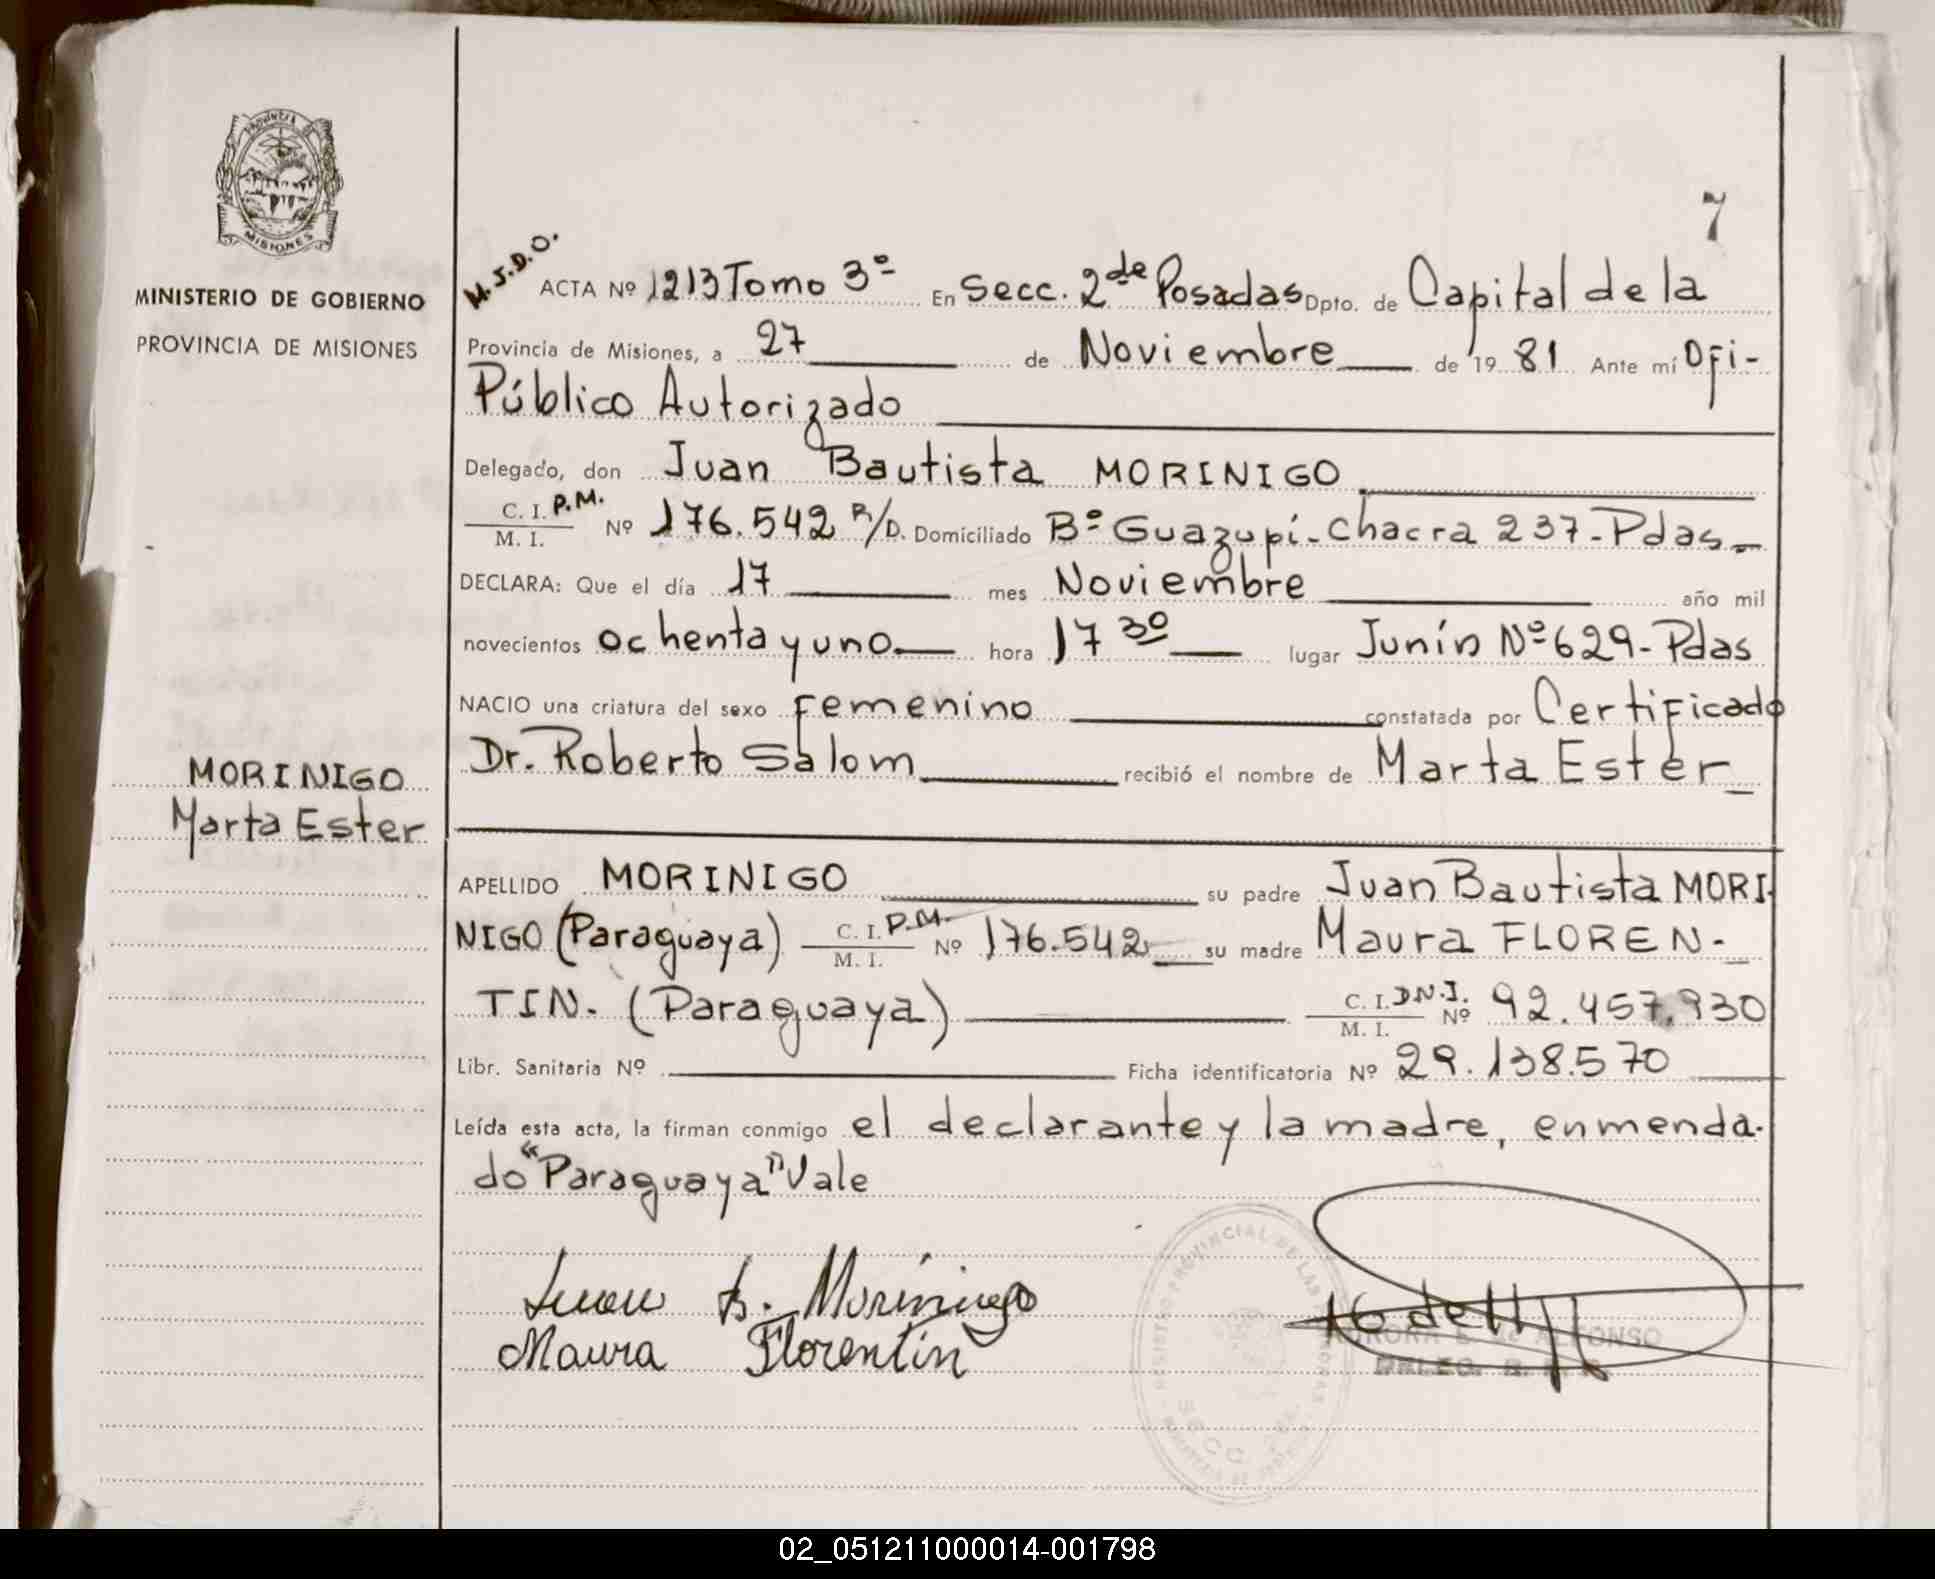 PROVINCIA DE
MISIONES
MINISTERIO DE GOBIERNO
PROVINCIA DE MISIONES
7
M.J.D.O.
ACTA Nº 1213 Tomo 3º En Secc. 2da Posadas Dpto. de Capital de la
Provincia de Misiones, a 27 de Noviembre de 1981 Ante mí Ofi-
Público Autorizado
Delegado, don Juan Bautista MORINIGO
C. I. P.M.
M. I. Nº 176.542 R/D. Domiciliado Bº Guazupí - Chacra 237 - Pdas
DECLARA: Que el día 17 mes Noviembre año mil
novecientos ochenta y uno hora 17 30 lugar Junín Nº 629 - Pdas
NACIO una criatura del sexo Femenino constatada por Certificado
Dr. Roberto Salom recibió el nombre de Marta Ester
MORINIGO
Marta Ester
APELLIDO MORINIGO su padre Juan Bautista MORI-
NIGO (Paraguaya) C. I. P.M. M. I. Nº 176.542 su madre Maura FLOREN-
TIN. (Paraguaya) C. I. D.N.I. M. I. Nº 92.457.930
Libr. Sanitaria Nº Ficha identificatoria Nº 29.138.570
Leída esta acta, la firman conmigo el declarante y la madre, enmenda-
do "Paraguaya" Vale
Juan B. Morínigo
Maura Florentín
REGISTRO PROVINCIAL DE LAS PERSONAS
SECC.
DELEG.
02_051211000014-001798